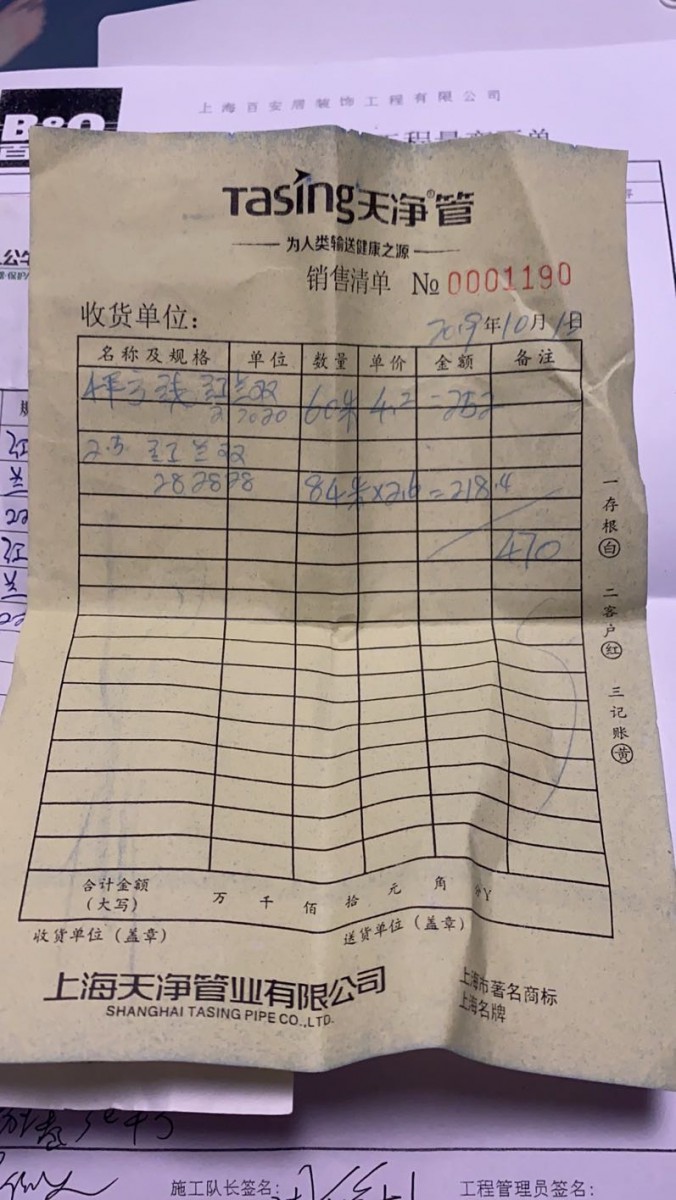 B&Q
上海百安居装饰工程有限公司
Tasing天净®管
为人类输送健康之源
销售清单 № 0001190
收货单位：
2019年10月15日
名称及规格 单位 数量 单价 金额 备注
4平方线 红兰双
2020 60米 4.2 =252
2.5 红兰双
282828 84米×2.6=218.4
470
一存根(白) 二客户(红) 三记账(黄)
合计金额
（大写） 万 千 佰 拾 元 角 分
收货单位（盖章） 送货单位（盖章）
上海天净管业有限公司
SHANGHAI TASING PIPE CO.,LTD.
上海市著名商标
上海名牌
施工队长签名： 工程管理员签名：